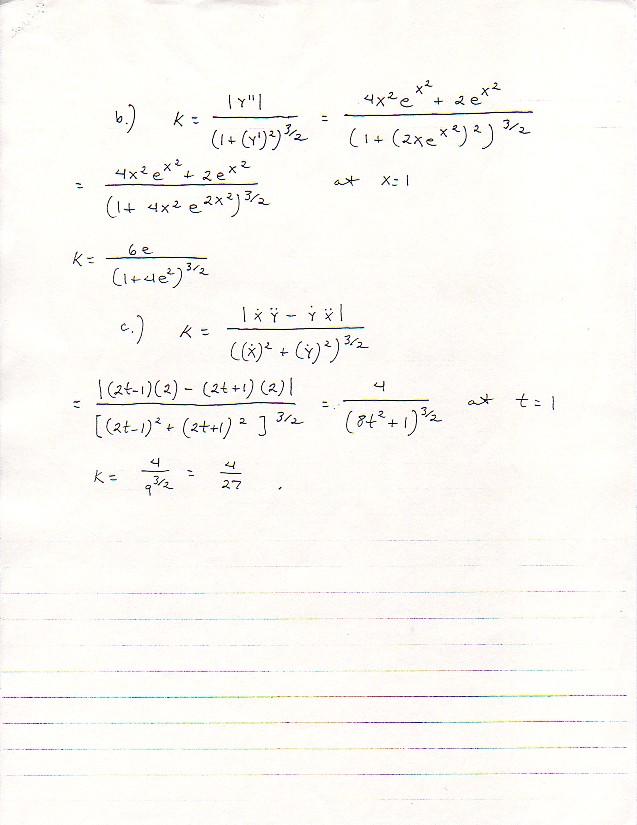 b.) K = |Y''| / (1+(Y')²)^3/2 = 4x²e^x² + 2e^x² / (1+(2xe^x²)²)^3/2
= 4x²e^x² + 2e^x² / (1+ 4x² e^2x²)^3/2 at x=1
K = 6e / (1+4e²)^3/2
c.) K = |ẋ Ÿ - Ẏ ẍ| / ((ẋ)² + (Ẏ)²)^3/2
= |(2t-1)(2) - (2t+1)(2)| / [(2t-1)² + (2t+1)²]^3/2 = 4 / (8t²+1)^3/2 at t=1
K = 4 / 9^3/2 = 4 / 27 .